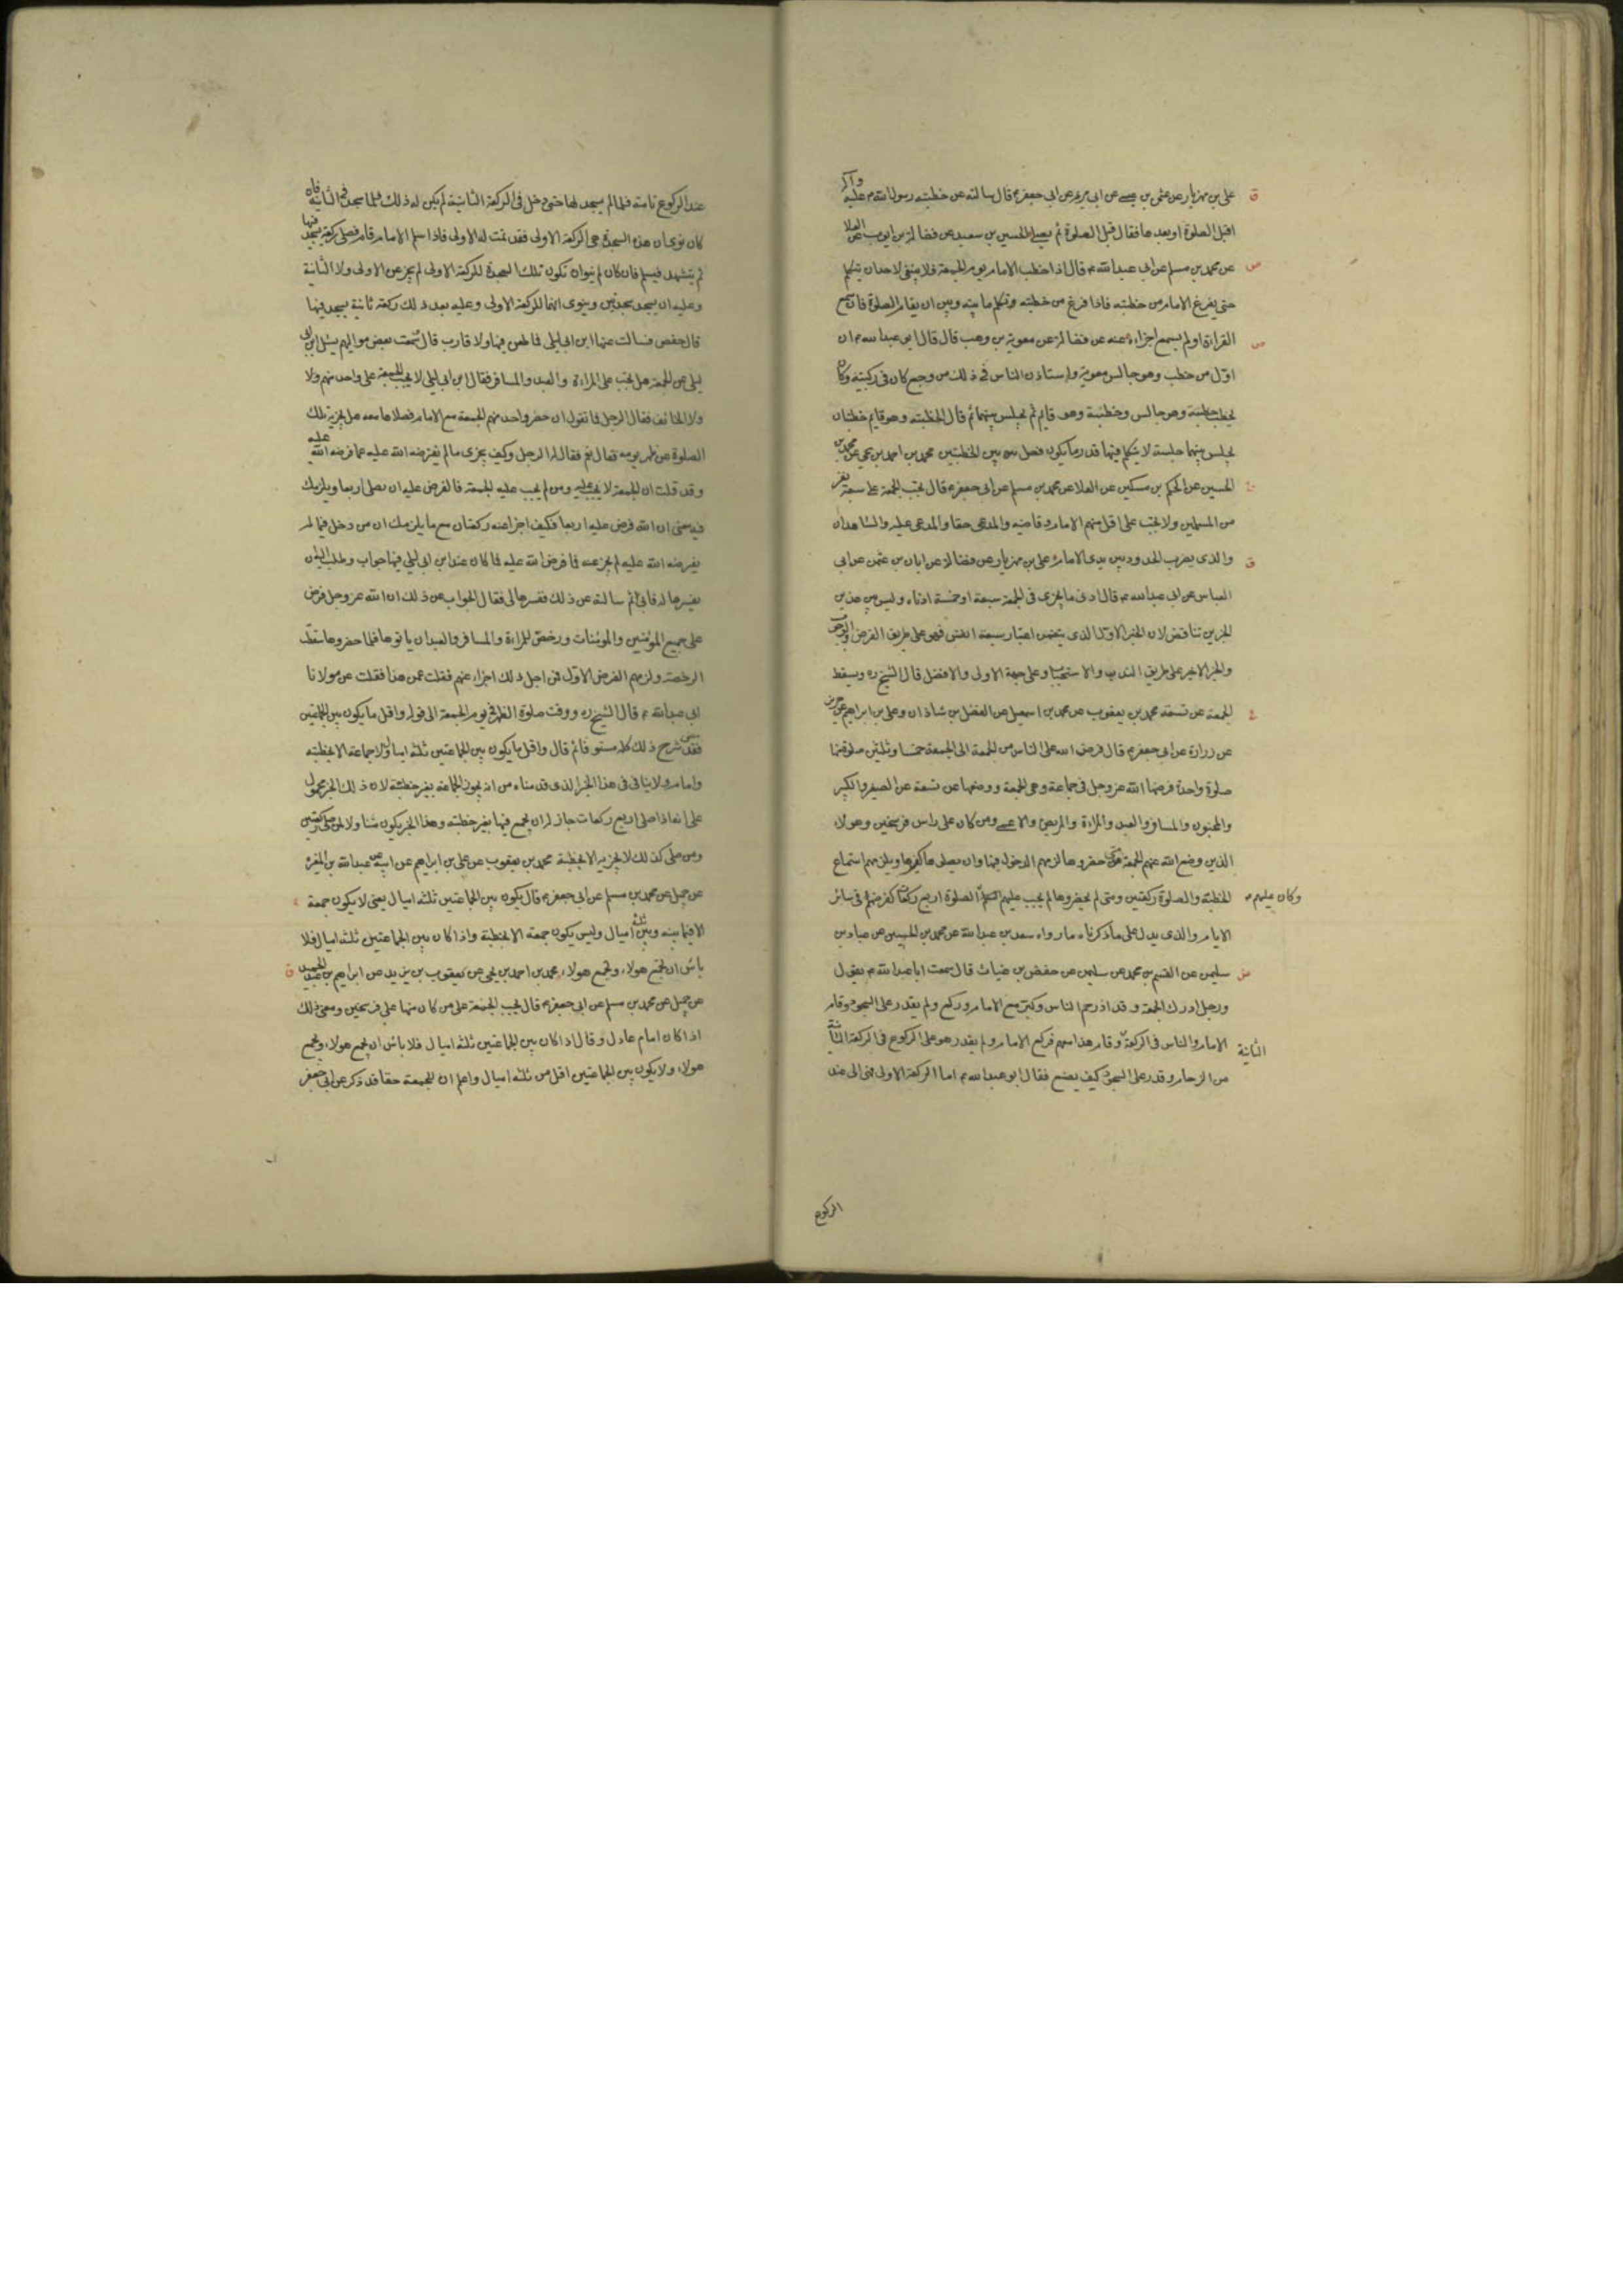 على بن مهزيار عن عثمن بن عيسى عن ابى مريم عن ابى جعفر ع قال سالته عن خطبة رسول الله ص عليه وآله
اقبل الصلوة او بعدها فقال قبل الصلوة ثم يصلى الحسين بن سعيد عن فضالة بن ايوب عن العلا
عن محمد بن مسلم عن ابى عبد الله ع قال اذا خطب الامام يوم الجمعة فلا ينبغى لاحد ان يتكلم
حتى يفرغ الامام من خطبته فاذا فرغ من خطبته وتكلم ما بينه وبين ان يقام الصلوة فان سمع
القراءة او لم يسمع اجزاءه عنه عن فضالة عن معوية بن وهب قال قال ابو عبد الله ع ان
اول من خطب وهو جالس معوية واستاذن الناس فى ذلك من وجع كان فى ركبتيه وكان
يخطب خطبة وهو جالس وخطبة وهو قايم ثم يجلس بينهما ثم قال الخطبة وهو قايم خطبتان
يجلس بينهما جلسة لا يتكلم فيها قدر ما يكون فصل ما بين الخطبتين محمد بن احمد بن يحيى عن محمد بن
الحسين عن الحكم بن مسكين عن العلا عن محمد بن مسلم عن ابى جعفر ع قال تجب الجمعة على سبعة نفر
من المسلمين ولا تجب على اقل منهم الامام وقاضيه والمدعى حقا والمدعى عليه والشاهدان
والذى يضرب الحدود بين يدى الامام على بن مهزيار عن فضالة عن ابان بن عثمن عن ابى
العباس عن ابى عبد الله ع قال ادنى ما يجزى فى الجمعة سبعة او خمسة ادناه وليس بين هذين
الخبرين تناقض لان الخبر الاول الذى يتضمن اعتبار سبعة انفس فهو على طريق الفرض والوجوب
والخبر الاخير على طريق الندب والاستحباب وعلى جهة الاولى والافضل قال الشيخ ره ويسقط
الجمعة عن تسعة محمد بن يعقوب عن محمد بن اسمعيل عن الفضل بن شاذان وعلى بن ابراهيم عن حريز
عن زرارة عن ابى جعفر ع قال فرض الله على الناس من الجمعة الى الجمعة خمسا وثلثين صلوة منها
صلوة واحدة فرضها الله عز وجل فى جماعة وهى الجمعة ووضعها عن تسعة عن الصغير والكبير
والمجنون والمسافر والعبد والمراءة والمريض والاعمى ومن كان على راس فرسخين وهولاء
الذين وضع الله عنهم الجمعة متى حضروها لزمهم الدخول فيها وان يصلوها كغيرهم ويلزمهم استماع
الخطبة والصلوة ركعتين ومتى لم يحضروها لم يجب عليهم الصلوة اربع ركعات كفرضهم فى سائر
وكان عليهم
الايام والذى يدل على ما ذكرناه ما رواه سعد بن عبد الله عن محمد بن الحسين عن عباد بن
سليمن عن القسم بن محمد عن سليمن عن حفص بن غياث قال سمعت ابا عبد الله ع يقول
ورجل ادرك الجمعة وقد ازدحم الناس وكبر مع الامام وركع ولم يقدر على السجود وقام
الامام والناس فى الركعة وقام هذا معهم فركع الامام ولم يقدر هو على الركوع فى الركعة الثانية
الثانية
من الزحام وقدر على السجود كيف يصنع فقال ابو عبد الله ع اما الركعة الاولى فهى الى عند
الركوع
عند الركوع تامة فلما لم يسجد لها حتى دخل فى الركعة الثانية لم يكن له ذلك فلما سجد فى الثانية فان
كان نوى ان هذه السجدة هى الركعة الاولى فقد تمت له الاولى فاذا سلم الامام قام فصلى ركعة يسجد فيها
ثم يتشهد فيسلم فان كان لم ينو ان تكون تلك السجدة للركعة الاولى لم يجز عن الاولى ولا الثانية
وعليه ان يسجد سجدتين وينوى انهما للركعة الاولى وعليه بعد ذلك ركعة ثانية يسجد فيها
قال حفص فسالت عنها ابن ابى ليلى فما طعن فيها ولا قارب قال سمعت بعض مواليهم يسئل ابن ابى
ليلى عن الجمعة هل تجب على المراءة والعبد والمسافر فقال ابن ابى ليلى لا تجب الجمعة على واحد منهم ولا
ولا الخائف فقال الرجل فما تقول ان حضر واحد منهم الجمعة مع الامام فصلاها معه هل تجزيه تلك
الصلوة عن ظهر يومه فقال نعم فقال له الرجل وكيف يجزى ما لم يفرضه الله عليه عما فرضه الله عليه
وقد قلت ان الجمعة لا تجب عليه ومن لم يجب عليه الجمعة فالفرض عليه ان يصلى اربعا ويلزمك
فيه معنى ان الله فرض عليه اربعا فكيف اجزا عنه ركعتان مع ما يلزمك ان من دخل فيما لم
يفرضه الله عليه لم يجز عنه فما فرض الله عليه فما كان عند ابن ابى ليلى فيها جواب وطلب اليه ان
يفسرها له فابى ثم سالته عن ذلك ففسرها لى فقال الجواب عن ذلك ان الله عز وجل فرض
على جميع المومنين والمومنات ورخص للمراءة والمسافر والعبد ان لا ياتوها فلما حضروها سقطت
الرخصة ولزمهم الفرض الاول فمن اجل ذلك اجزاء عنهم فقلت عمن هذا فقلت عن مولانا
ابى عبد الله ع قال الشيخ ره ووقت صلوة الظهر فى يوم الجمعة الى قوله واقل ما يكون بين الجماعتين
فقد مضى شرح ذلك كله مستوفا ثم قال واقل ما يكون بين الجماعتين ثلثة اميال ولا جماعة الا بخطبة
وامام ولا ينافى فى هذا الخبر الذى قدمناه من انه يجوز الجماعة بغير خطبة لان ذلك الخبر محمول
على انه اذا صلى اربع ركعات جاز له ان يجمع فيها بغير خطبة وهذا الخبر يكون متناولا لمن صلى ركعتين
ومن صلى كذلك لا يجزيه الا بخطبة محمد بن يعقوب عن على بن ابراهيم عن ابيه عن عبد الله بن المغيرة
عن جميل عن محمد بن مسلم عن ابى جعفر ع قال يكون بين الجماعتين ثلثة اميال يعنى لا يكون جمعة
الا فيما بينه وبين ثلثة اميال وليس يكون جمعة الا بخطبة واذا كان بين الجماعتين ثلثة اميال فلا
باس ان يجمع هولاء ويجمع هولاء محمد بن احمد بن يحيى عن يعقوب بن يزيد عن ابراهيم بن عبد الحميد
عن جميل عن محمد بن مسلم عن ابى جعفر ع قال تجب الجمعة على من كان منها على فرسخين ومعنى ذلك
اذا كان امام عادل وقال اذا كان بين الجماعتين ثلثة اميال فلا باس ان يجمع هولاء ويجمع
هولاء ولا يكون بين الجماعتين اقل من ثلثة اميال واعلم ان للجمعة حقا قد ذكر عن ابى جعفر